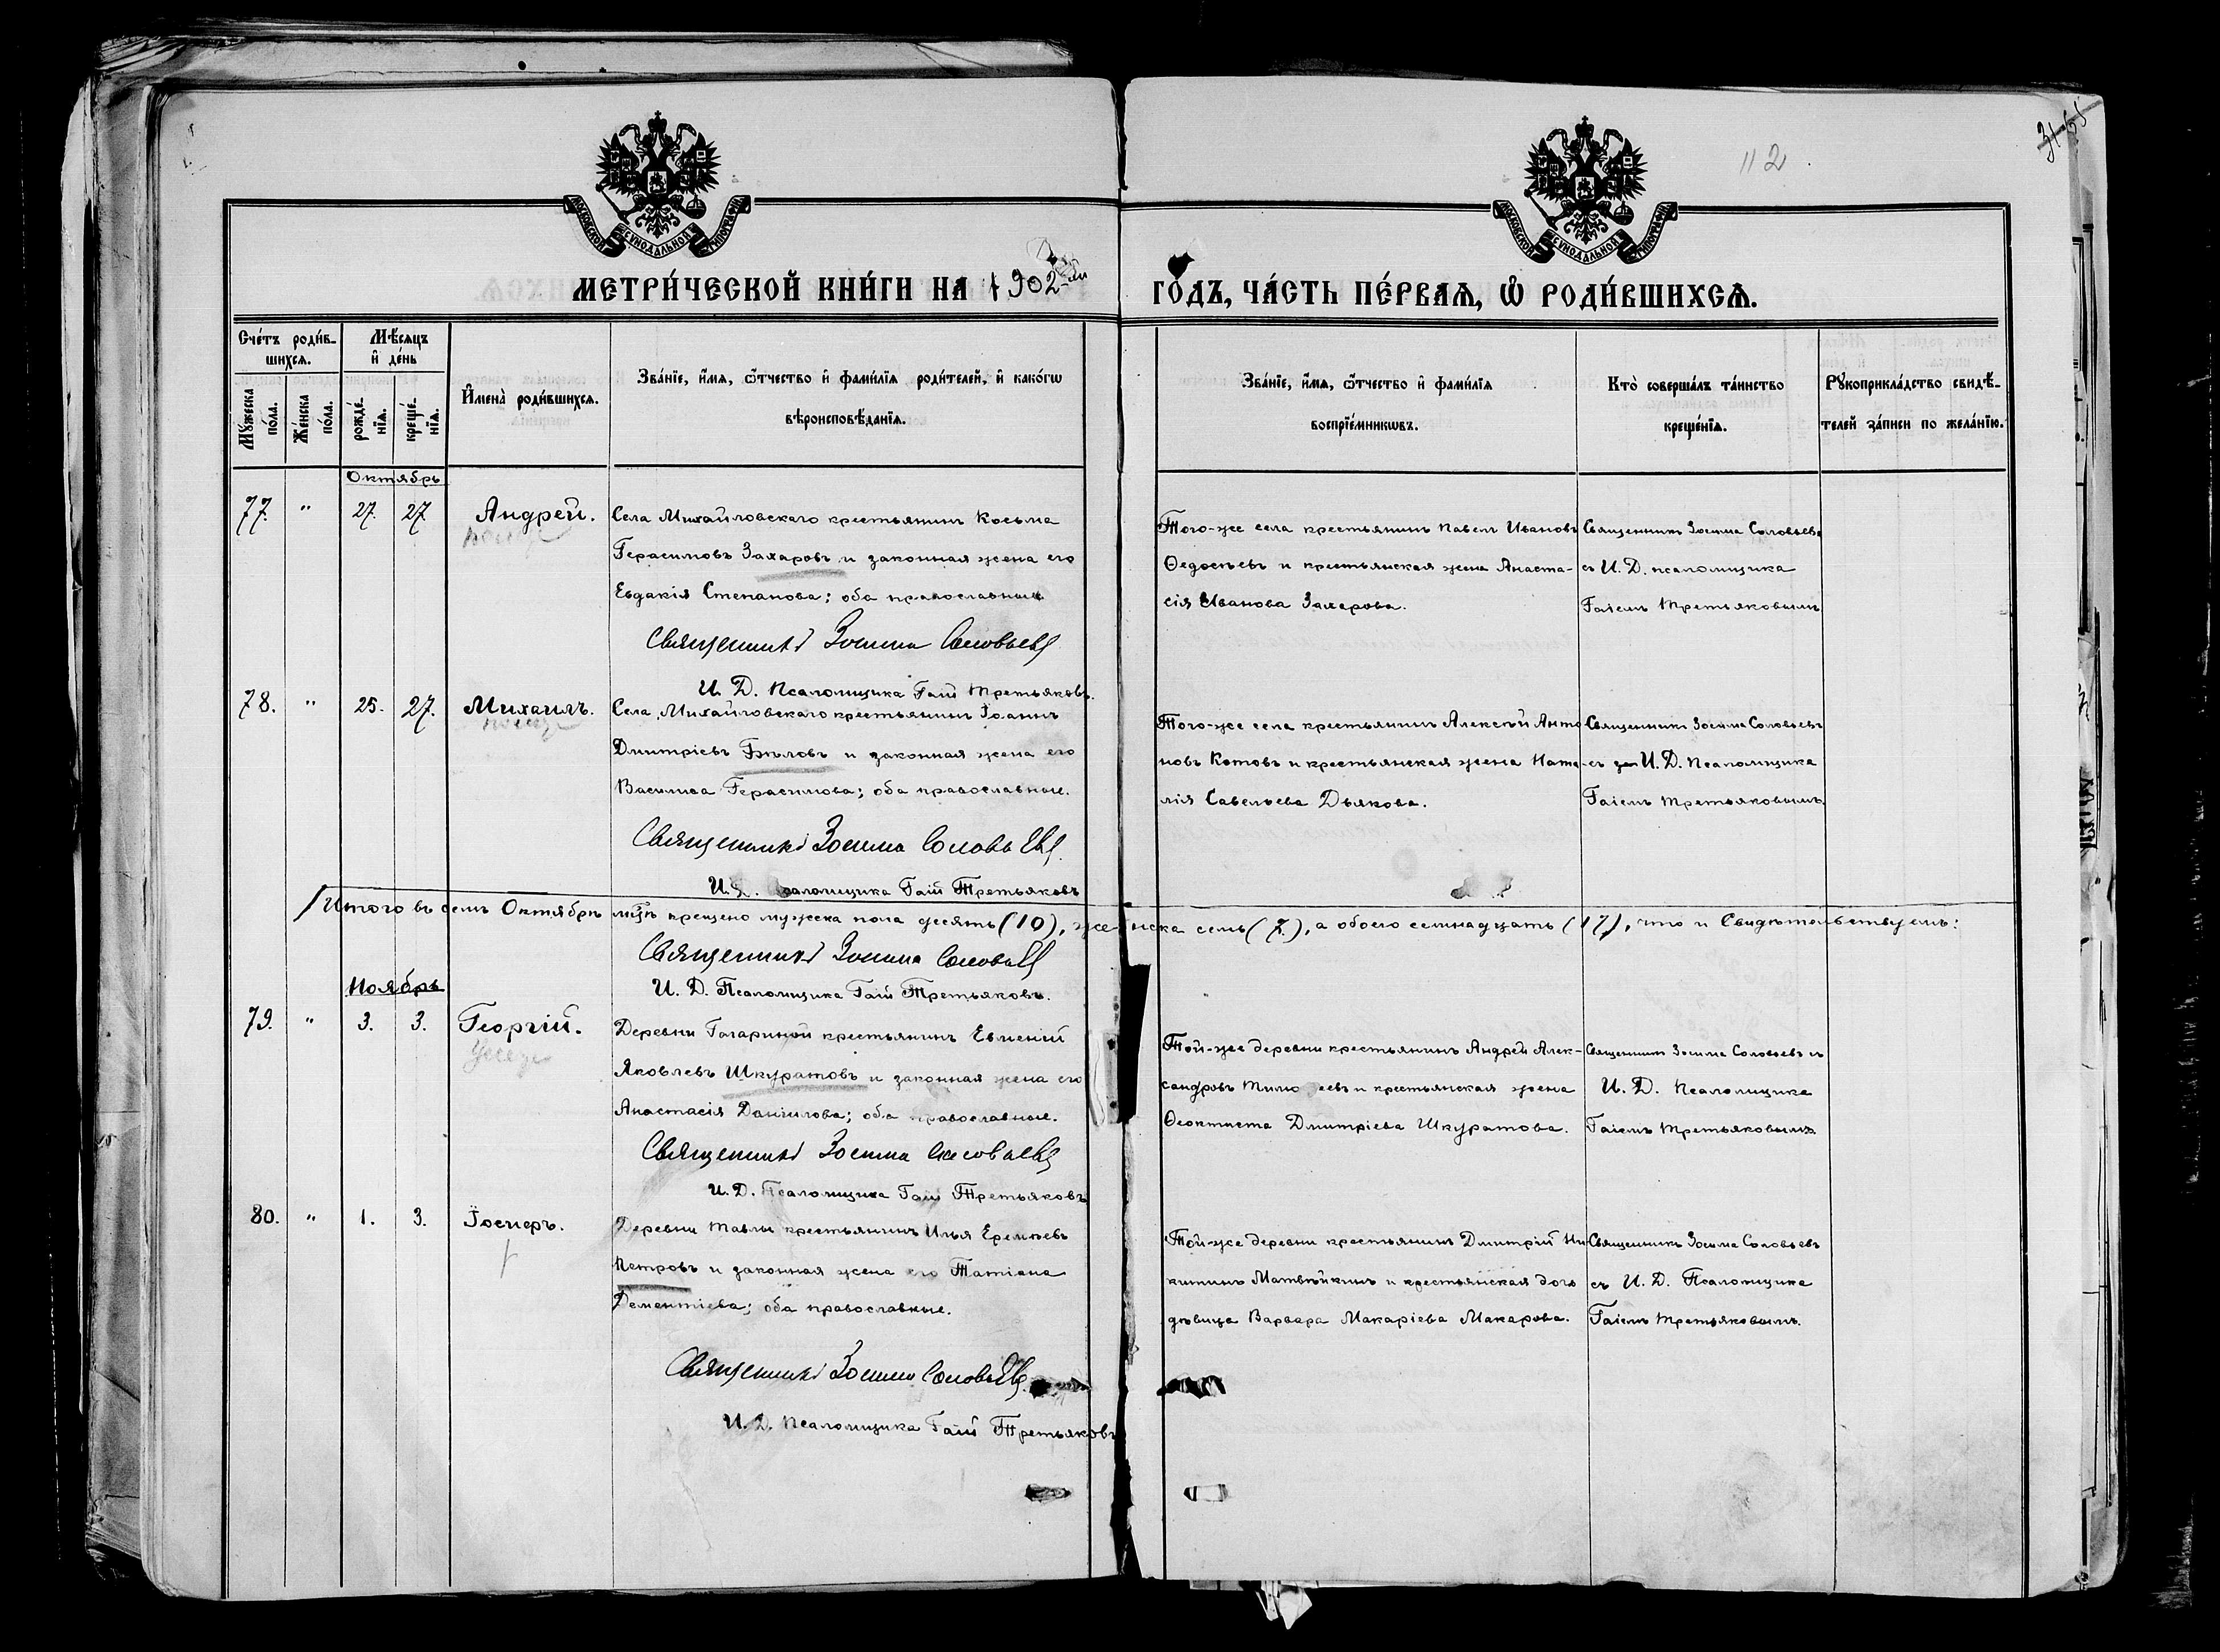 112
МОСКОВСКОЙ СѴНОДАЛЬНОЙ ТИПОГРАФІИ
МОСКОВСКОЙ СѴНОДАЛЬНОЙ ТИПОГРАФІИ
МЕТРИ́ЧЕСКОЙ КНИ́ГИ НА 1902-ый ГО́ДЪ, ЧА́СТЬ ПЕ́РВАѦ, Ѽ РОДИ́ВШИХСѦ.
Сче́тъ роди́в-
шихсѧ.
Мꙋжеска по́ла.
Же́нска по́ла.
Мѣ́сѧцъ
и҆ де́нь
рожде́-
нїѧ.
креще́-
нїѧ.
И҆мена̀ роди́вшихсѧ.
Зва́нїе, и҆́мѧ, ѻ҆́тчество и҆ фами́лїѧ роди́телей, и҆ како́гѡ
вѣроисповѣ́данїѧ.
Зва́нїе, и҆́мѧ, ѻ҆́тчество и҆ фами́лїѧ
воспрїе́мникѡвъ.
Кто̀ соверша́лъ та́инство
креще́нїѧ.
Рꙋкоприкла́дство свидѣ́-
телей за́писи по жела́нїю.
Октябрь
77. " 27. 27 Андрей.
Села Михайловскаго крестьянинъ Косьма
Герасимовъ Захаровъ и законная жена его
Евдакія Степанова; оба православные
Священникъ Зосима Соловьевъ
И. Д. Псаломщика Гаій Третьяковъ.
Того-же села крестьянинъ Павелъ Ивановъ
Ѳедосѣевъ и крестьянская жена Анаста-
сія Иванова Захарова.
Священникъ Зосима Соловьевъ
съ И. Д. псаломщика
Гаіемъ Третьяковымъ
78. " 25. 27. Михаилъ.
Села Михайловскаго крестьянинъ Іоаннъ
Дмитріевъ Бѣловъ и законная жена его
Василиса Герасимова; оба православные.
Священникъ Зосима Соловьевъ.
И. Д. Псаломщика Гаій Третьяковъ
Того-же села крестьянинъ Алексѣй Анто
новъ Котовъ и крестьянская жена Ната-
лія Савельева Дьякова.
Священникъ Зосима Соловьевъ
съ И. Д. Псаломщика
Гаіемъ Третьяковымъ.
Итого въ семъ Октябрѣ мцѣ крещено мужеска пола десять (10), женска семь (7.), а обоего семнадцать (17), что и Свидѣтельствуемъ:
Священникъ Зосима Соловьевъ
И. Д. Псаломщика Гаій Третьяковъ.
Ноябрь
79. " 3. 3. Георгій.
Деревни Гагариной крестьянинъ Евменій
Яковлевъ Шкуратовъ и законная жена его
Анастасія Даніилова; оба православные.
Священникъ Зосима Соловьевъ
И. Д. Псаломщика Гаій Третьяковъ
Той-же деревни крестьянинъ Андрей Алек-
сандровъ Тимоѳеевъ и крестьянская жена
Ѳеоктиста Дмитріева Шкуратова.
Священникъ Зосима Соловьевъ съ
И. Д. Псаломщика
Гаіемъ Третьяковымъ.
80. " 1. 3. Іосифъ.
Деревни Тавлы крестьянинъ Илья Еремѣевъ
Петровъ и законная жена его Татіана
Дементіева; оба православные.
Священникъ Зосима Соловьевъ.
И. Д. Псаломщика Гаій Третьяковъ
Той-же деревни крестьянинъ Дмитрій Ни-
китинъ Матвѣйкинъ и крестьянская дочь
дѣвица Варвара Макаріева Макарова.
Священникъ Зосима Соловьевъ
съ И. Д. Псаломщика
Гаіемъ Третьяковымъ.